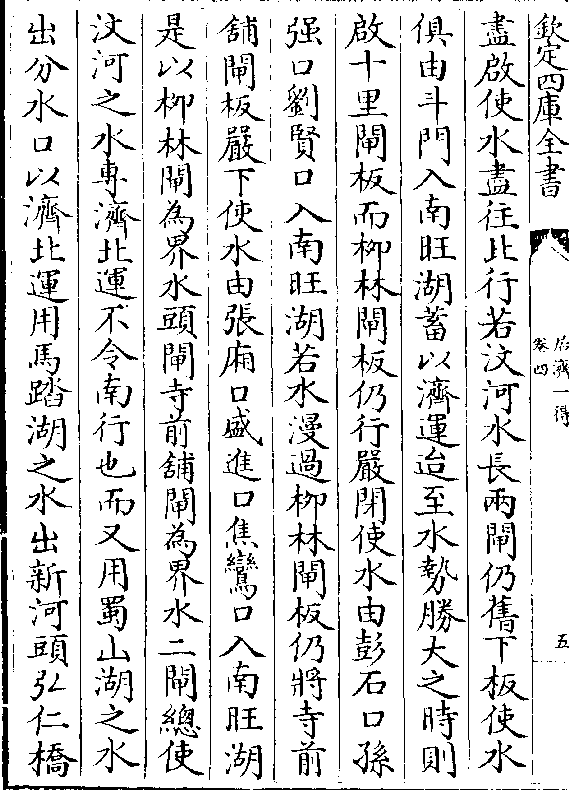 欽定四庫全書
居濟一得
卷四
五
盡啟使水盡往北行若汶河水長兩閘仍舊下板使水
俱由斗門入南旺湖蓄以濟運迨至水勢勝大之時則
啟十里閘板而柳林閘板仍行嚴閉使水由彭石口孫
强口劉賢口入南旺湖若水漫過柳林閘板仍將寺前
舖閘板嚴下使水由張廂口盛進口焦鸞口入南旺湖
是以柳林閘為界水頭閘寺前舖閘為界水二閘總使
汶河之水專濟北運不令南行也而又用蜀山湖之水
出分水口以濟北運用馬踏湖之水出新河頭弘仁橋